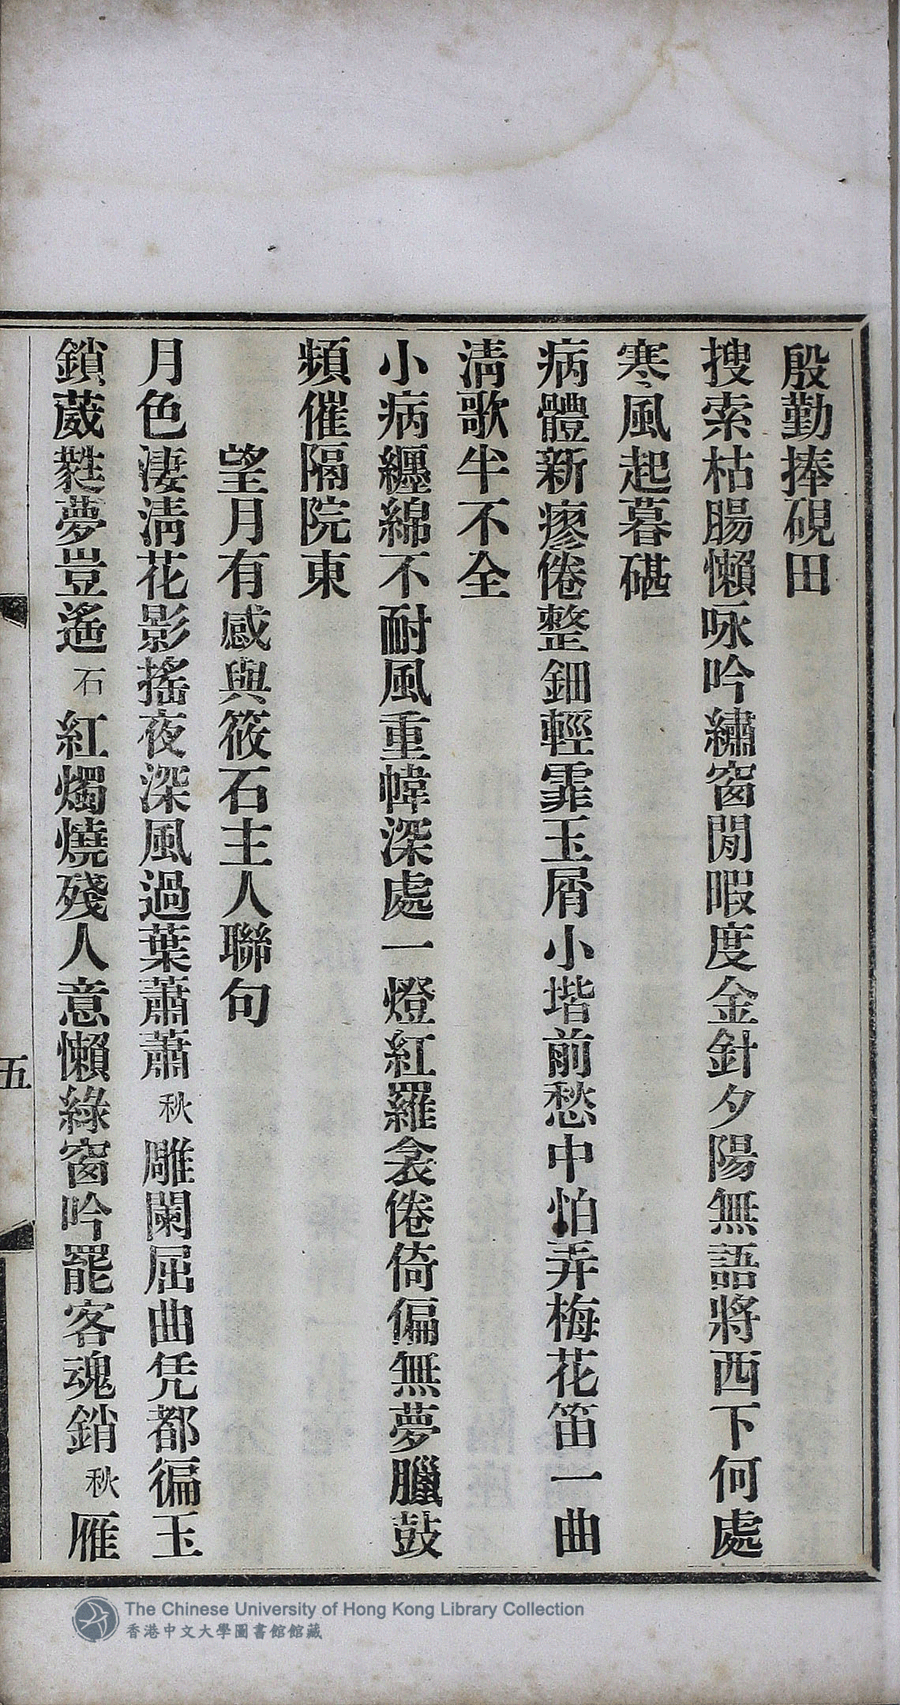 殷勤捧硯田
搜索枯腸懶咏吟繡窗閒暇度金針夕陽無語將西下何處
寒風起暮碪
病體新瘳倦整鈿輕霏玉屑小堦前愁中怕弄梅花笛一曲
淸歌半不全
小病纏綿不耐風重幃深處一燈紅羅衾倦倚偏無夢臘鼓
頻催隔院東
望月有感與筱石主人聯句
月色淒淸花影搖夜深風過葉蕭蕭秋雕闌屈曲凭都徧玉
鎖葳蕤夢豈遙石紅燭燒殘人意懶綠窗吟罷客魂銷秋雁
五
The Chinese University of Hong Kong Library Collection
香港中文大學圖書館館藏